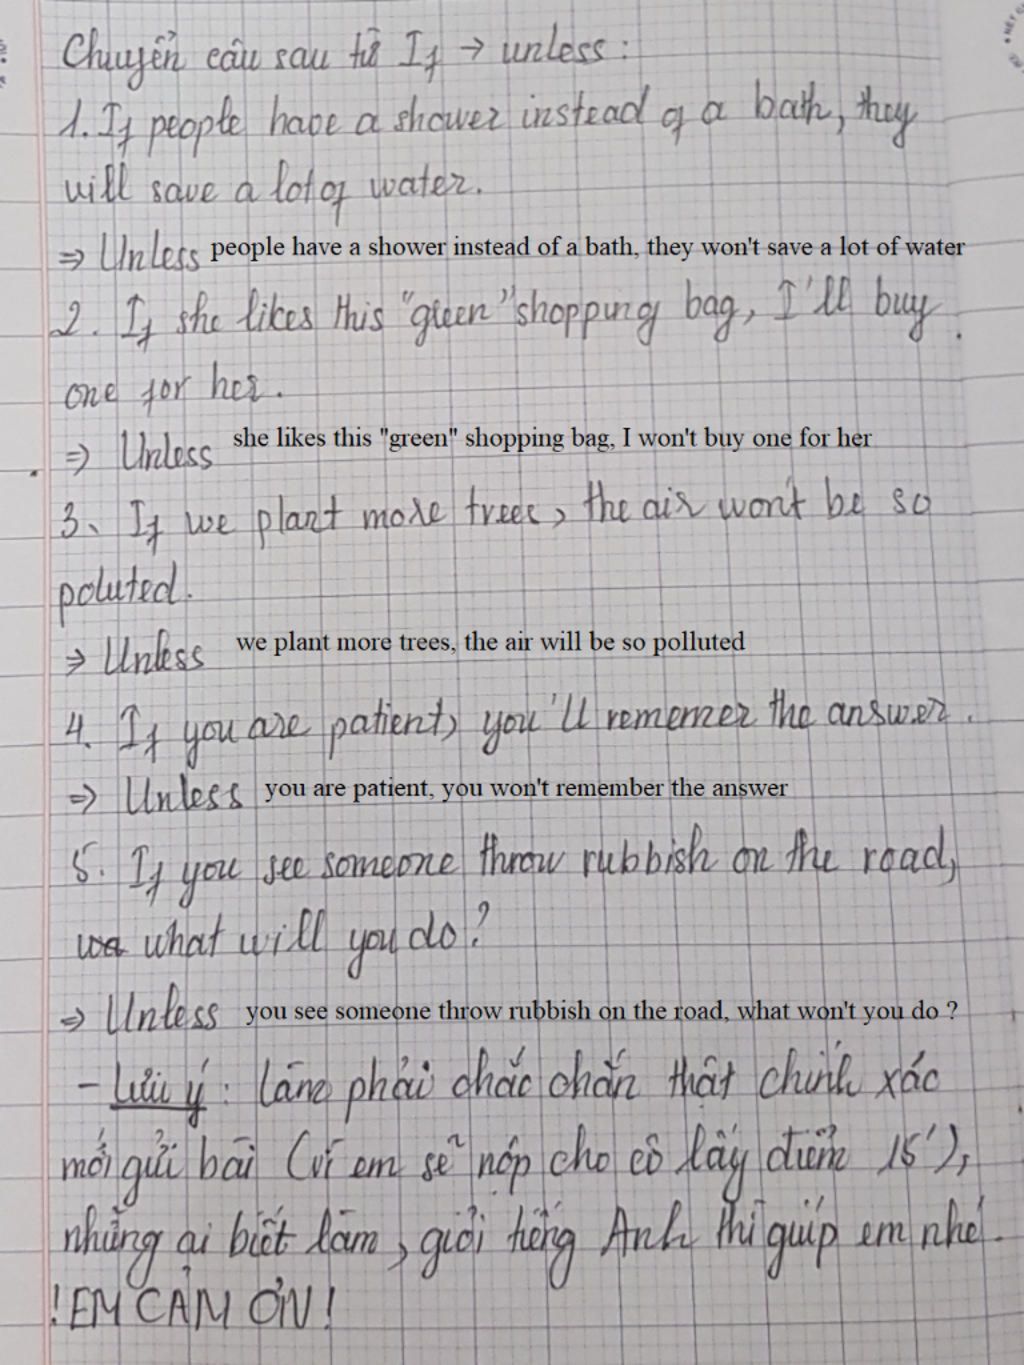 Chuyển câu sau từ If → unless:
1. If people have a shower instead of a bath, they
will save a lot of water.
⇒ Unless people have a shower instead of a bath, they won't save a lot of water
2. If she likes this "green" shopping bag, I'll buy
one for her.
⇒ Unless she likes this "green" shopping bag, I won't buy one for her
3. If we plant more trees, the air won't be so
poluted.
⇒ Unless we plant more trees, the air will be so polluted
4. If you are patient, you'll rememer the answer.
⇒ Unless you are patient, you won't remember the answer
5. If you see someone throw rubbish on the road,
what will you do?
⇒ Unless you see someone throw rubbish on the road, what won't you do ?
- Lưu ý: Làm phải chắc chắn thật chính xác
mới gửi bài (vì em sẽ nộp cho cô lấy điểm 15'),
những ai biết làm, giỏi tiếng Anh thì giúp em nhé.
! EM CẢM ƠN !